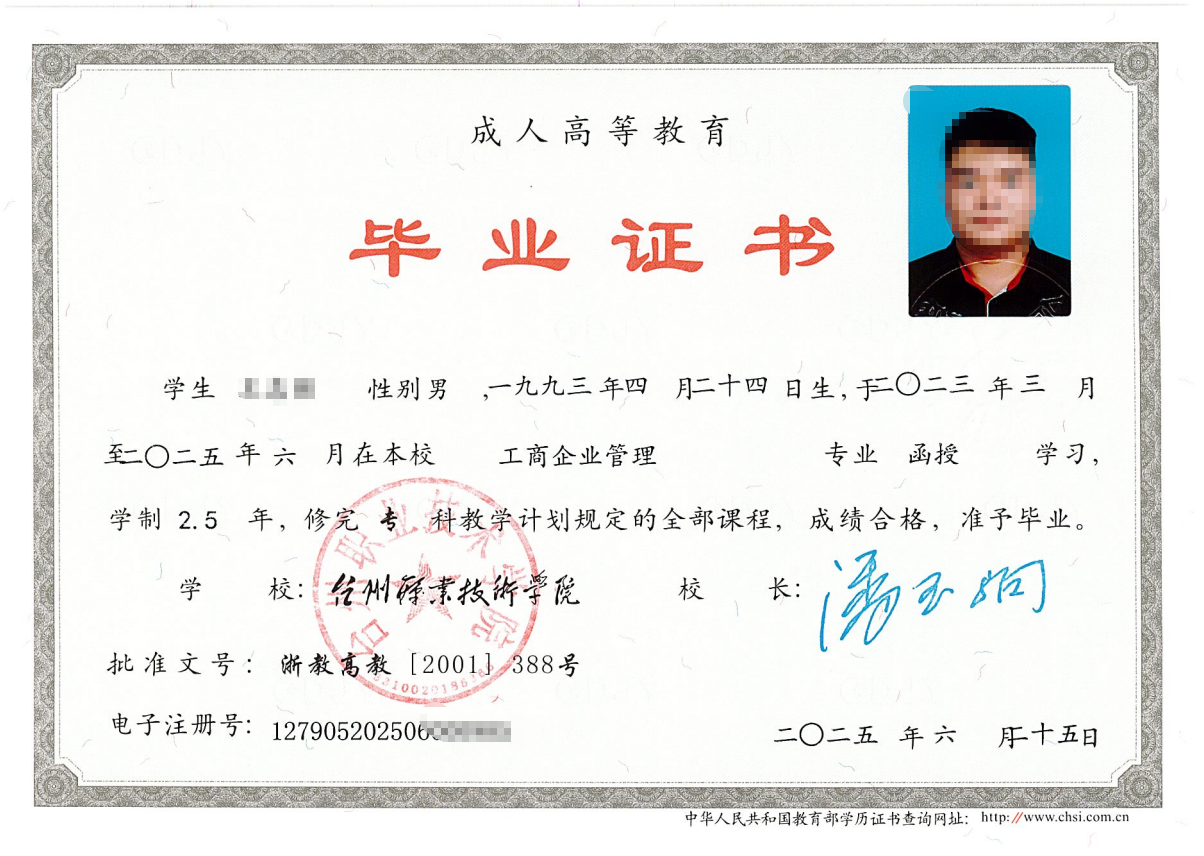 成人高等教育
毕业证书
学生 性别男 ,一九九三年四月二十四日生,于二〇二三年三月
至二〇二五年六月在本校 工商企业管理 专业 函授 学习,
学制 2.5 年,修完 专 科教学计划规定的全部课程,成绩合格,准予毕业。
学 校: 台州职业技術學院 校 长:
批准文号: 浙教高教 [2001] 388号
电子注册号: 127905202506
二〇二五年六月二十五日
台州职业技术学院
中华人民共和国教育部学历证书查询网址: http://www.chsi.com.cn